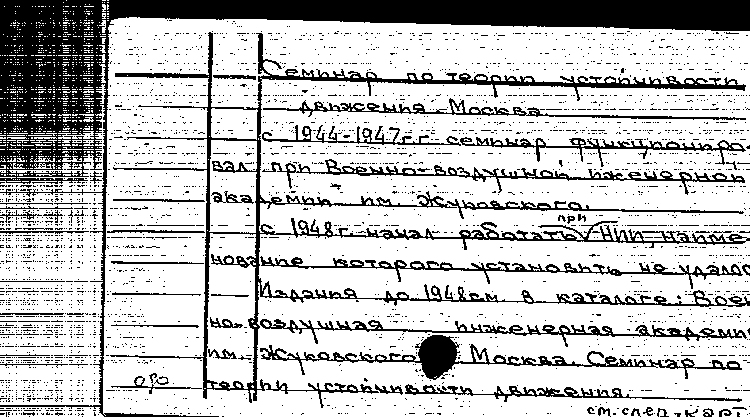 Семинар по теории устойчивости
движения. Москва.
с 1944-1947г.г. семинар функциониро-
вал при Военно-воздушной инженерной
академии им. Жуковского.
при
с 1948г. начал работать НИИ, наиме-
нование которого установить не удалос
Издания до 1948г. см. в каталоге: Воен
но-воздушная инженерная академи
им. Жуковского Москва. Семинар по
теории устойчивости движения.
см. след. карт